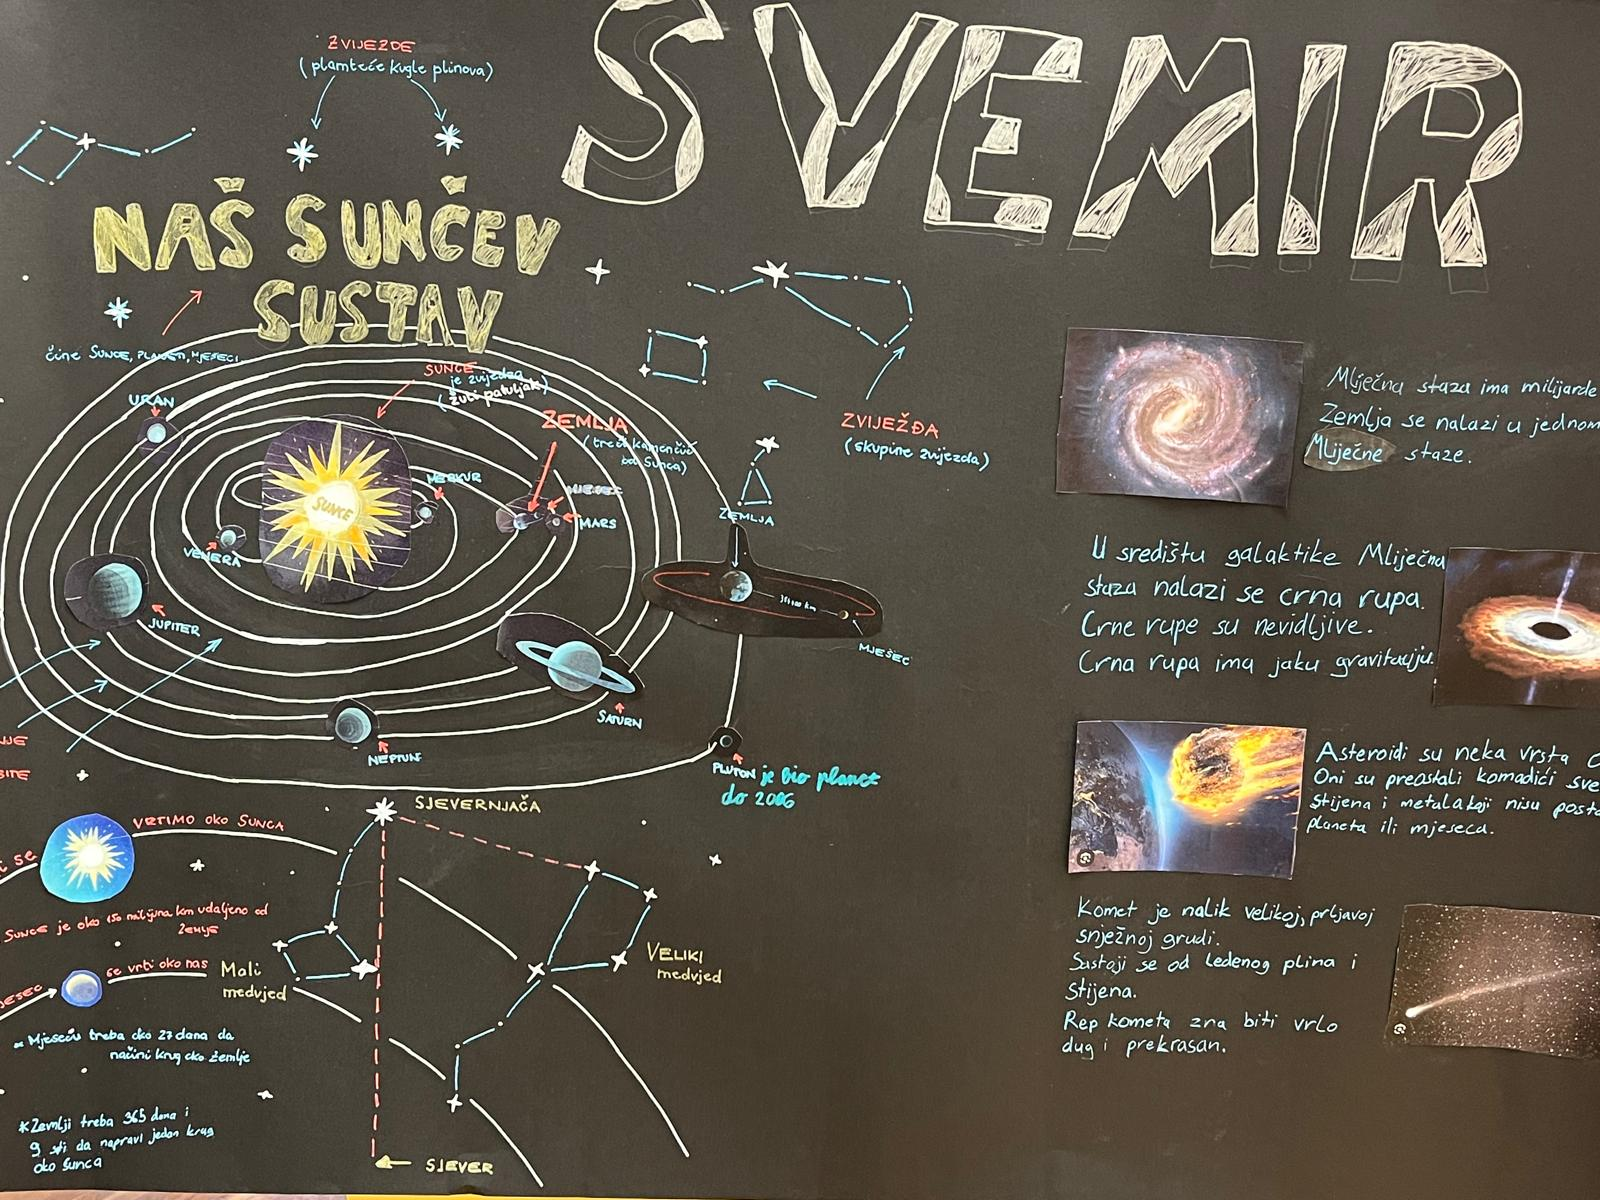 SVEMIR
ZVIJEZDE
(plamteće kugle plinova)
NAŠ SUNČEV
SUSTAV
čine SUNCE, PLANETI, MJESECI
SUNCE
je zvijezda
(žuti patuljak)
URAN
ZEMLJA
(treći kamenčić
od Sunca)
ZVIJEŽĐA
(skupine zvijezda)
MERKUR
MJESEC
MARS
SUNCE
VENERA
ZEMLJA
km
MJESEC
JUPITER
SATURN
NEPTUN
PLUTON je bio planet
do 2006
SJEVERNJAČA
VRTIMO OKO SUNCA
i se
SUNCE je oko 150 milijuna km udaljeno od
Zemlje
se vrti oko nas
Mali
medvjed
VELIKI
medvjed
Mjesecu treba oko 27 dana da
načini krug oko Zemlje
*Zemlji treba 365 dana i
da napravi jedan krug
oko Sunca
SJEVER
Mliječna staza ima milijarde
Zemlja se nalazi u jednom
Mliječne staze.
U središtu galaktike Mliječna
staza nalazi se crna rupa.
Crne rupe su nevidljive.
Crna rupa ima jaku gravitaciju.
Asteroidi su neka vrsta
Oni su preostali komadići
stijena i metala koji nisu
planeta ili mjeseca.
Komet je nalik velikoj, prljavoj
snježnoj grudi.
Sastoji se od ledenog plina i
stijena.
Rep kometa zna biti vrlo
dug i prekrasan.